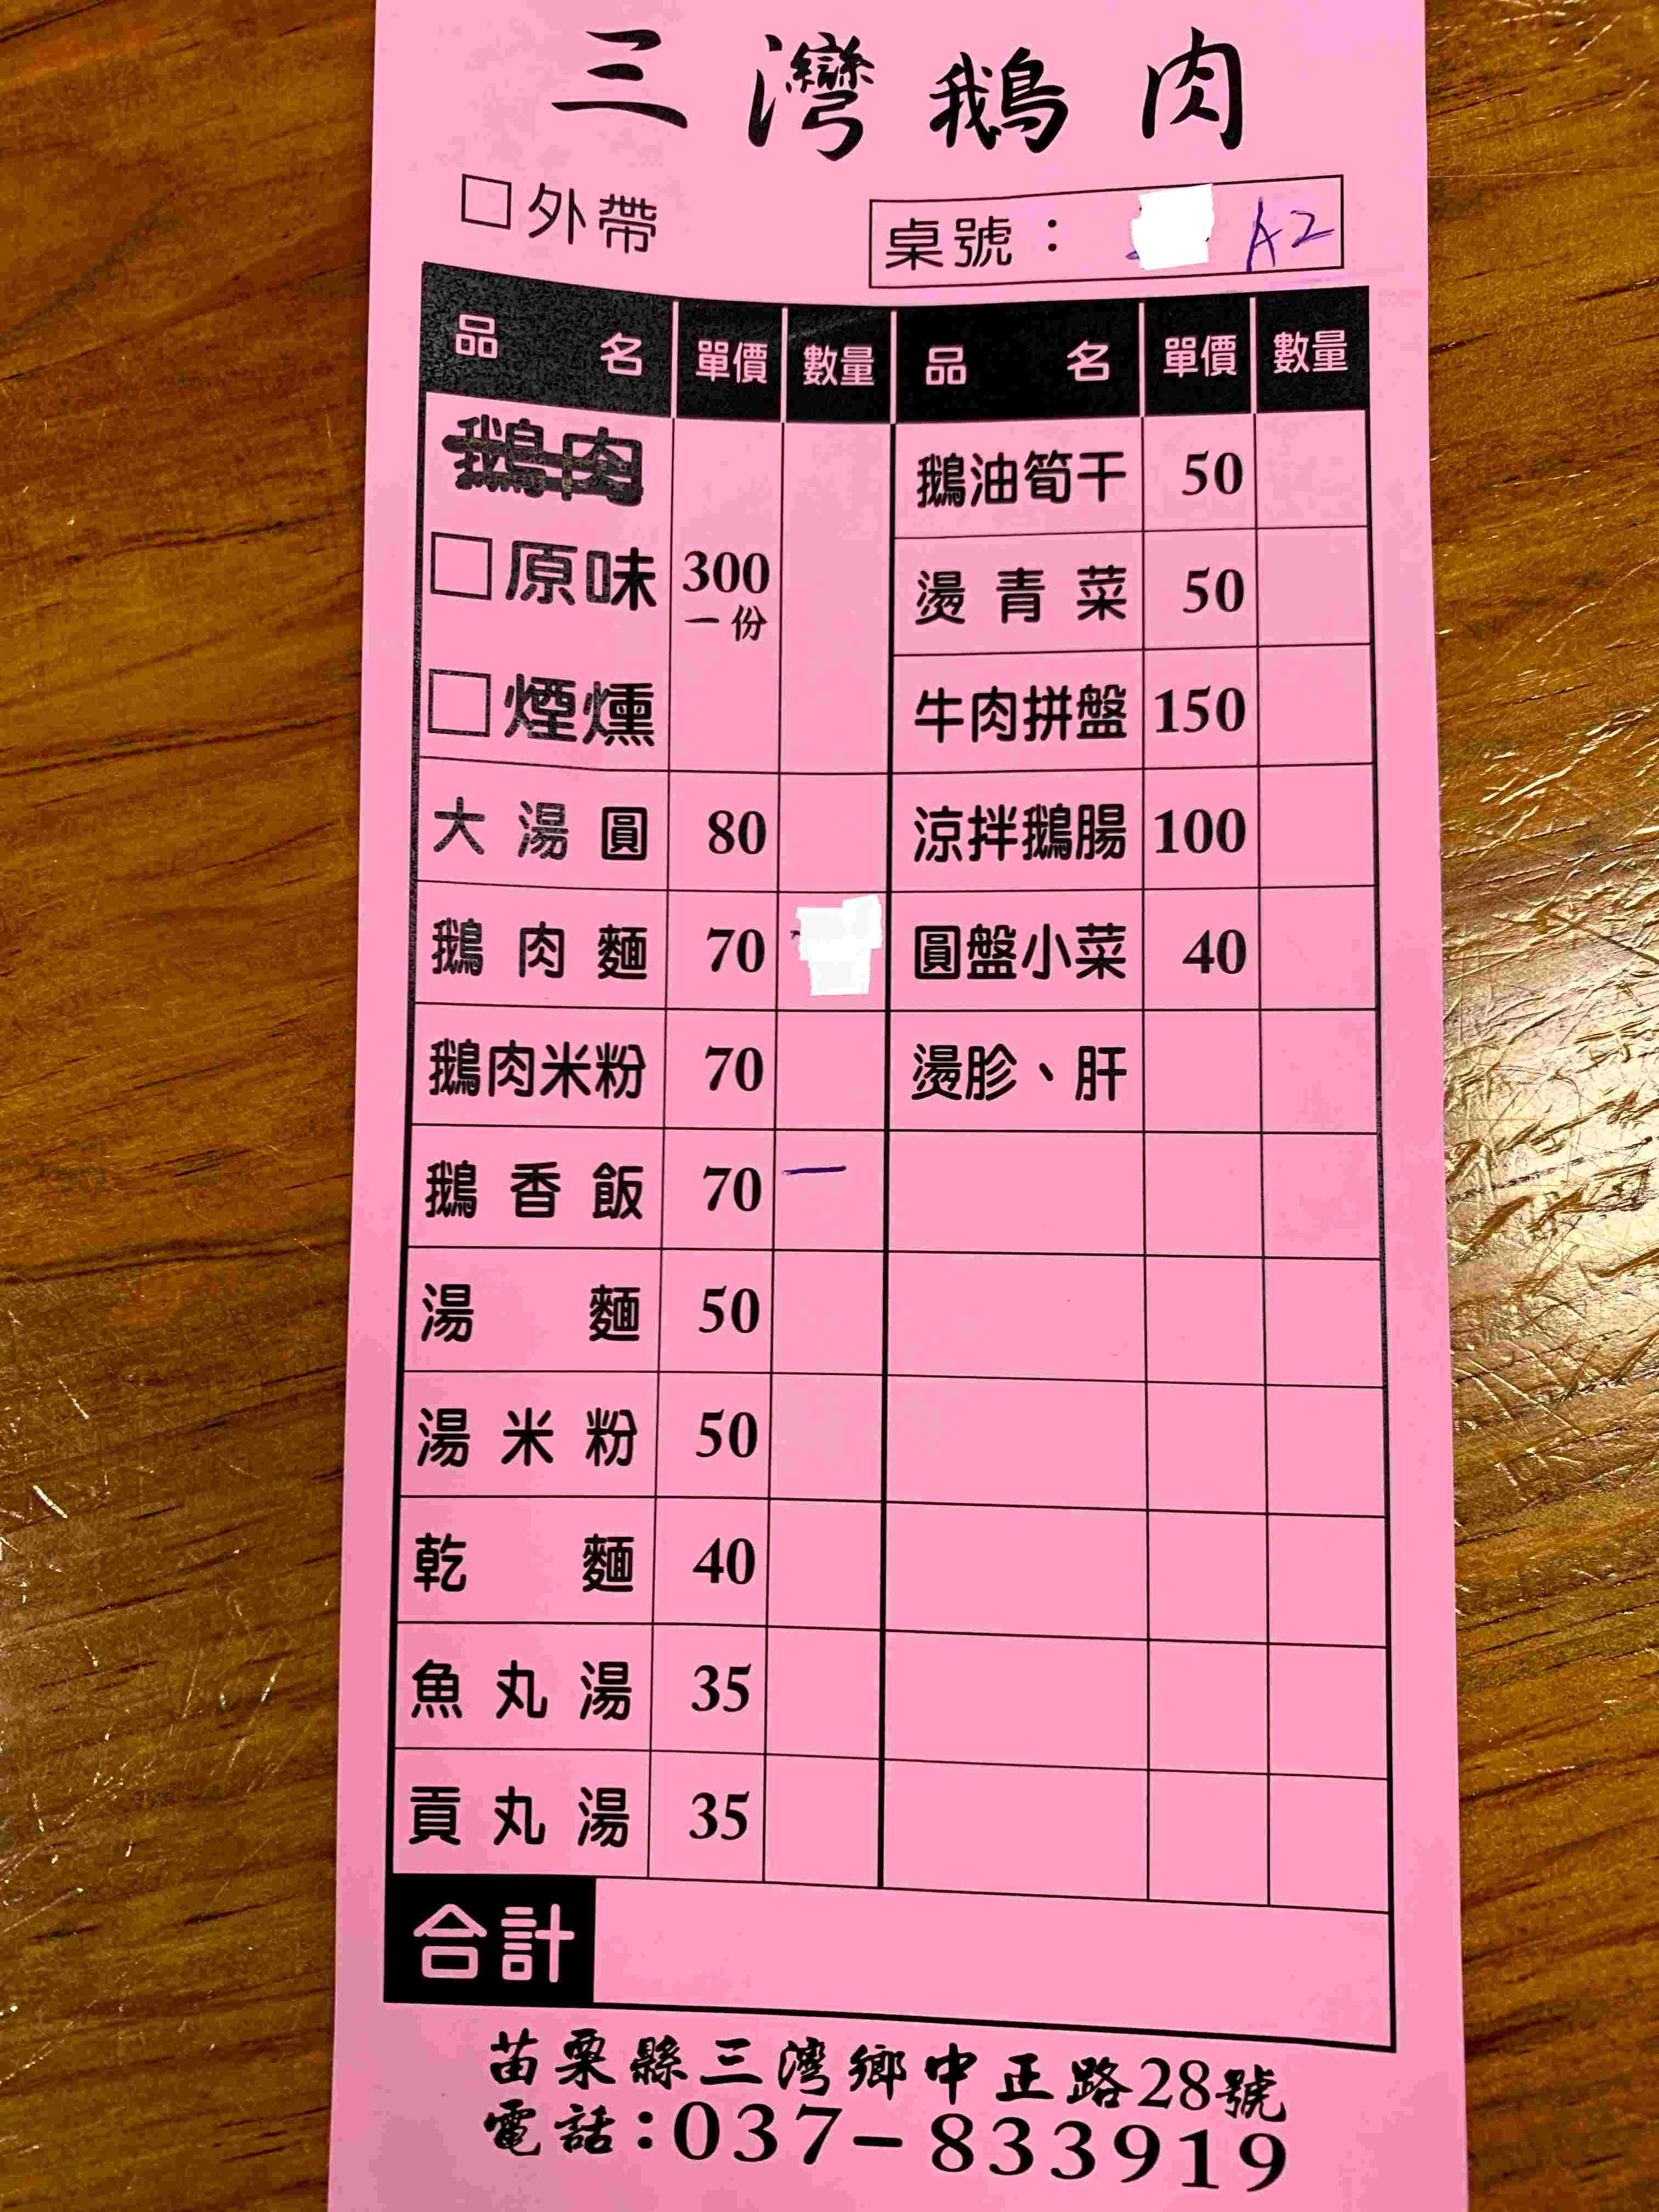 三灣鵝肉
□外帶
桌號： A2
品名 單價 數量 品名 單價 數量
鵝肉
□原味 300 一份
□煙燻
鵝油筍干 50
燙青菜 50
牛肉拼盤 150
大湯圓 80 涼拌鵝腸 100
鵝肉麵 70 圓盤小菜 40
鵝肉米粉 70 燙胗、肝
鵝香飯 70 一
湯麵 50
湯米粉 50
乾麵 40
魚丸湯 35
貢丸湯 35
合計
苗栗縣三灣鄉中正路28號
電話：037-833919